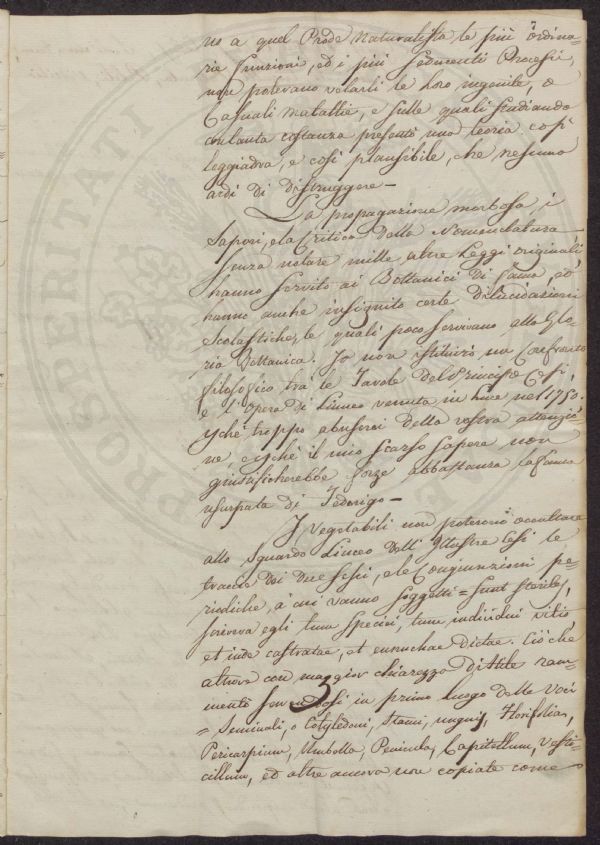 no a quel Prode Naturalista le più ordina-
rie funzioni, ed i più sedincenti Processi,
non potevano velarli le loro ingenite, o
Casuali malattie, e sulle quali studiando
con tanta costanza presentò una teoria così
leggiadra, e così plausibile, che nessuno
ardì di distruggere-
La propagazione morbosa, i
Sapori, e la Critica della Nomenclatura
senza notare mille altre Leggi originali
hanno servito ai Bottanici di fama, ed
hanno anche insignito certe dilucidazioni
Scolastiche, le quali poco servivano alla Glo-
ria Bottanica. Io non istituirò un Confronto
filosofico trà le Tavole del Principe Cesi,
e l'Opera di Linneo venuta in Luce nel 1750.
troppo abuserei della vostra attenzio-
ne, e il mio scarso sapere non
giustificherebbe forze abbastanza la fama
usurpata di Federigo-
I Vegetabili non poterono occultare
allo Sguardo Linceo dell' Illustre Cesi le
traccie dei due sessi, e le Congiunzioni pe-
riodiche, à cui vanno soggetti = Sunt steriles,
scriveva egli tum speciei, tum individui vitio
et inde castratae, et eunuchae dictae. Ciò che
altrove con maggior chiarezza
mentò servendosi in primo luogo delle voci
= Seminali, o Cotyledoni, Stami, ungues, Florifolia,
Pericarpium, Umbella, Penicula, Capitellum, Verti-
cillum, ed altre ancora non copiate come